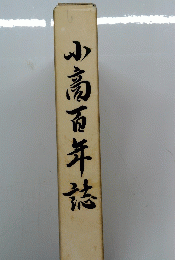 小高百年誌